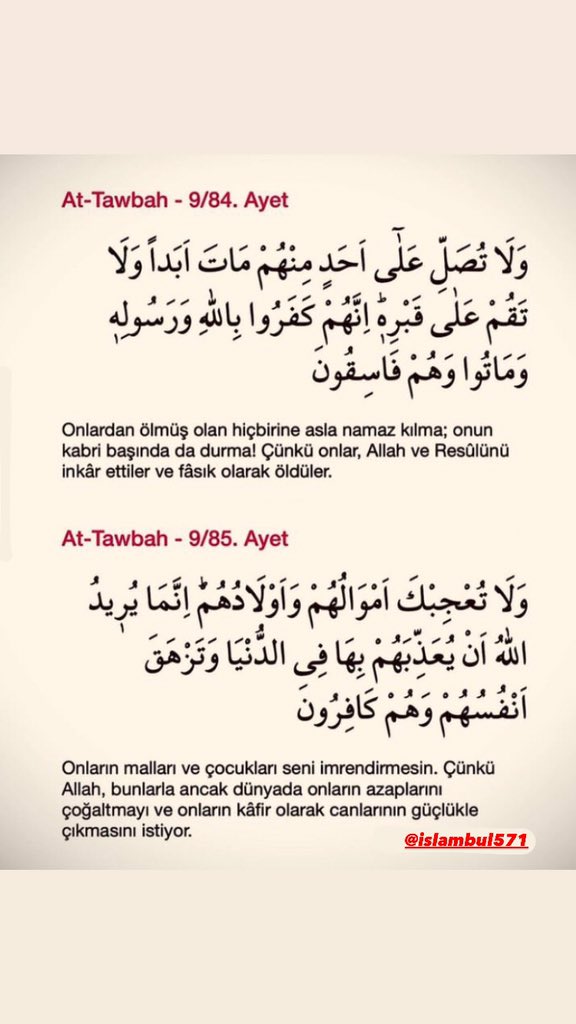 At-Tawbah - 9/84. Ayet
وَلَا تُصَلِّ عَلٰٓى اَحَدٍ مِنْهُمْ مَاتَ اَبَداً وَلَا
تَقُمْ عَلٰى قَبْرِه۪ۜ اِنَّهُمْ كَفَرُوا بِاللّٰهِ وَرَسُولِه۪
وَمَاتُوا وَهُمْ فَاسِقُونَ
Onlardan ölmüş olan hiçbirine asla namaz kılma; onun
kabri başında da durma! Çünkü onlar, Allah ve Resûlünü
inkâr ettiler ve fâsık olarak öldüler.
At-Tawbah - 9/85. Ayet
وَلَا تُعْجِبْكَ اَمْوَالُهُمْ وَاَوْلَادُهُمْۜ اِنَّمَا يُر۪يدُ
اللّٰهُ اَنْ يُعَذِّبَهُمْ بِهَا فِي الدُّنْيَا وَتَزْهَقَ
اَنْفُسُهُمْ وَهُمْ كَافِرُونَ
Onların malları ve çocukları seni imrendirmesin. Çünkü
Allah, bunlarla ancak dünyada onların azaplarını
çoğaltmayı ve onların kâfir olarak canlarının güçlükle
çıkmasını istiyor.
@islambul571